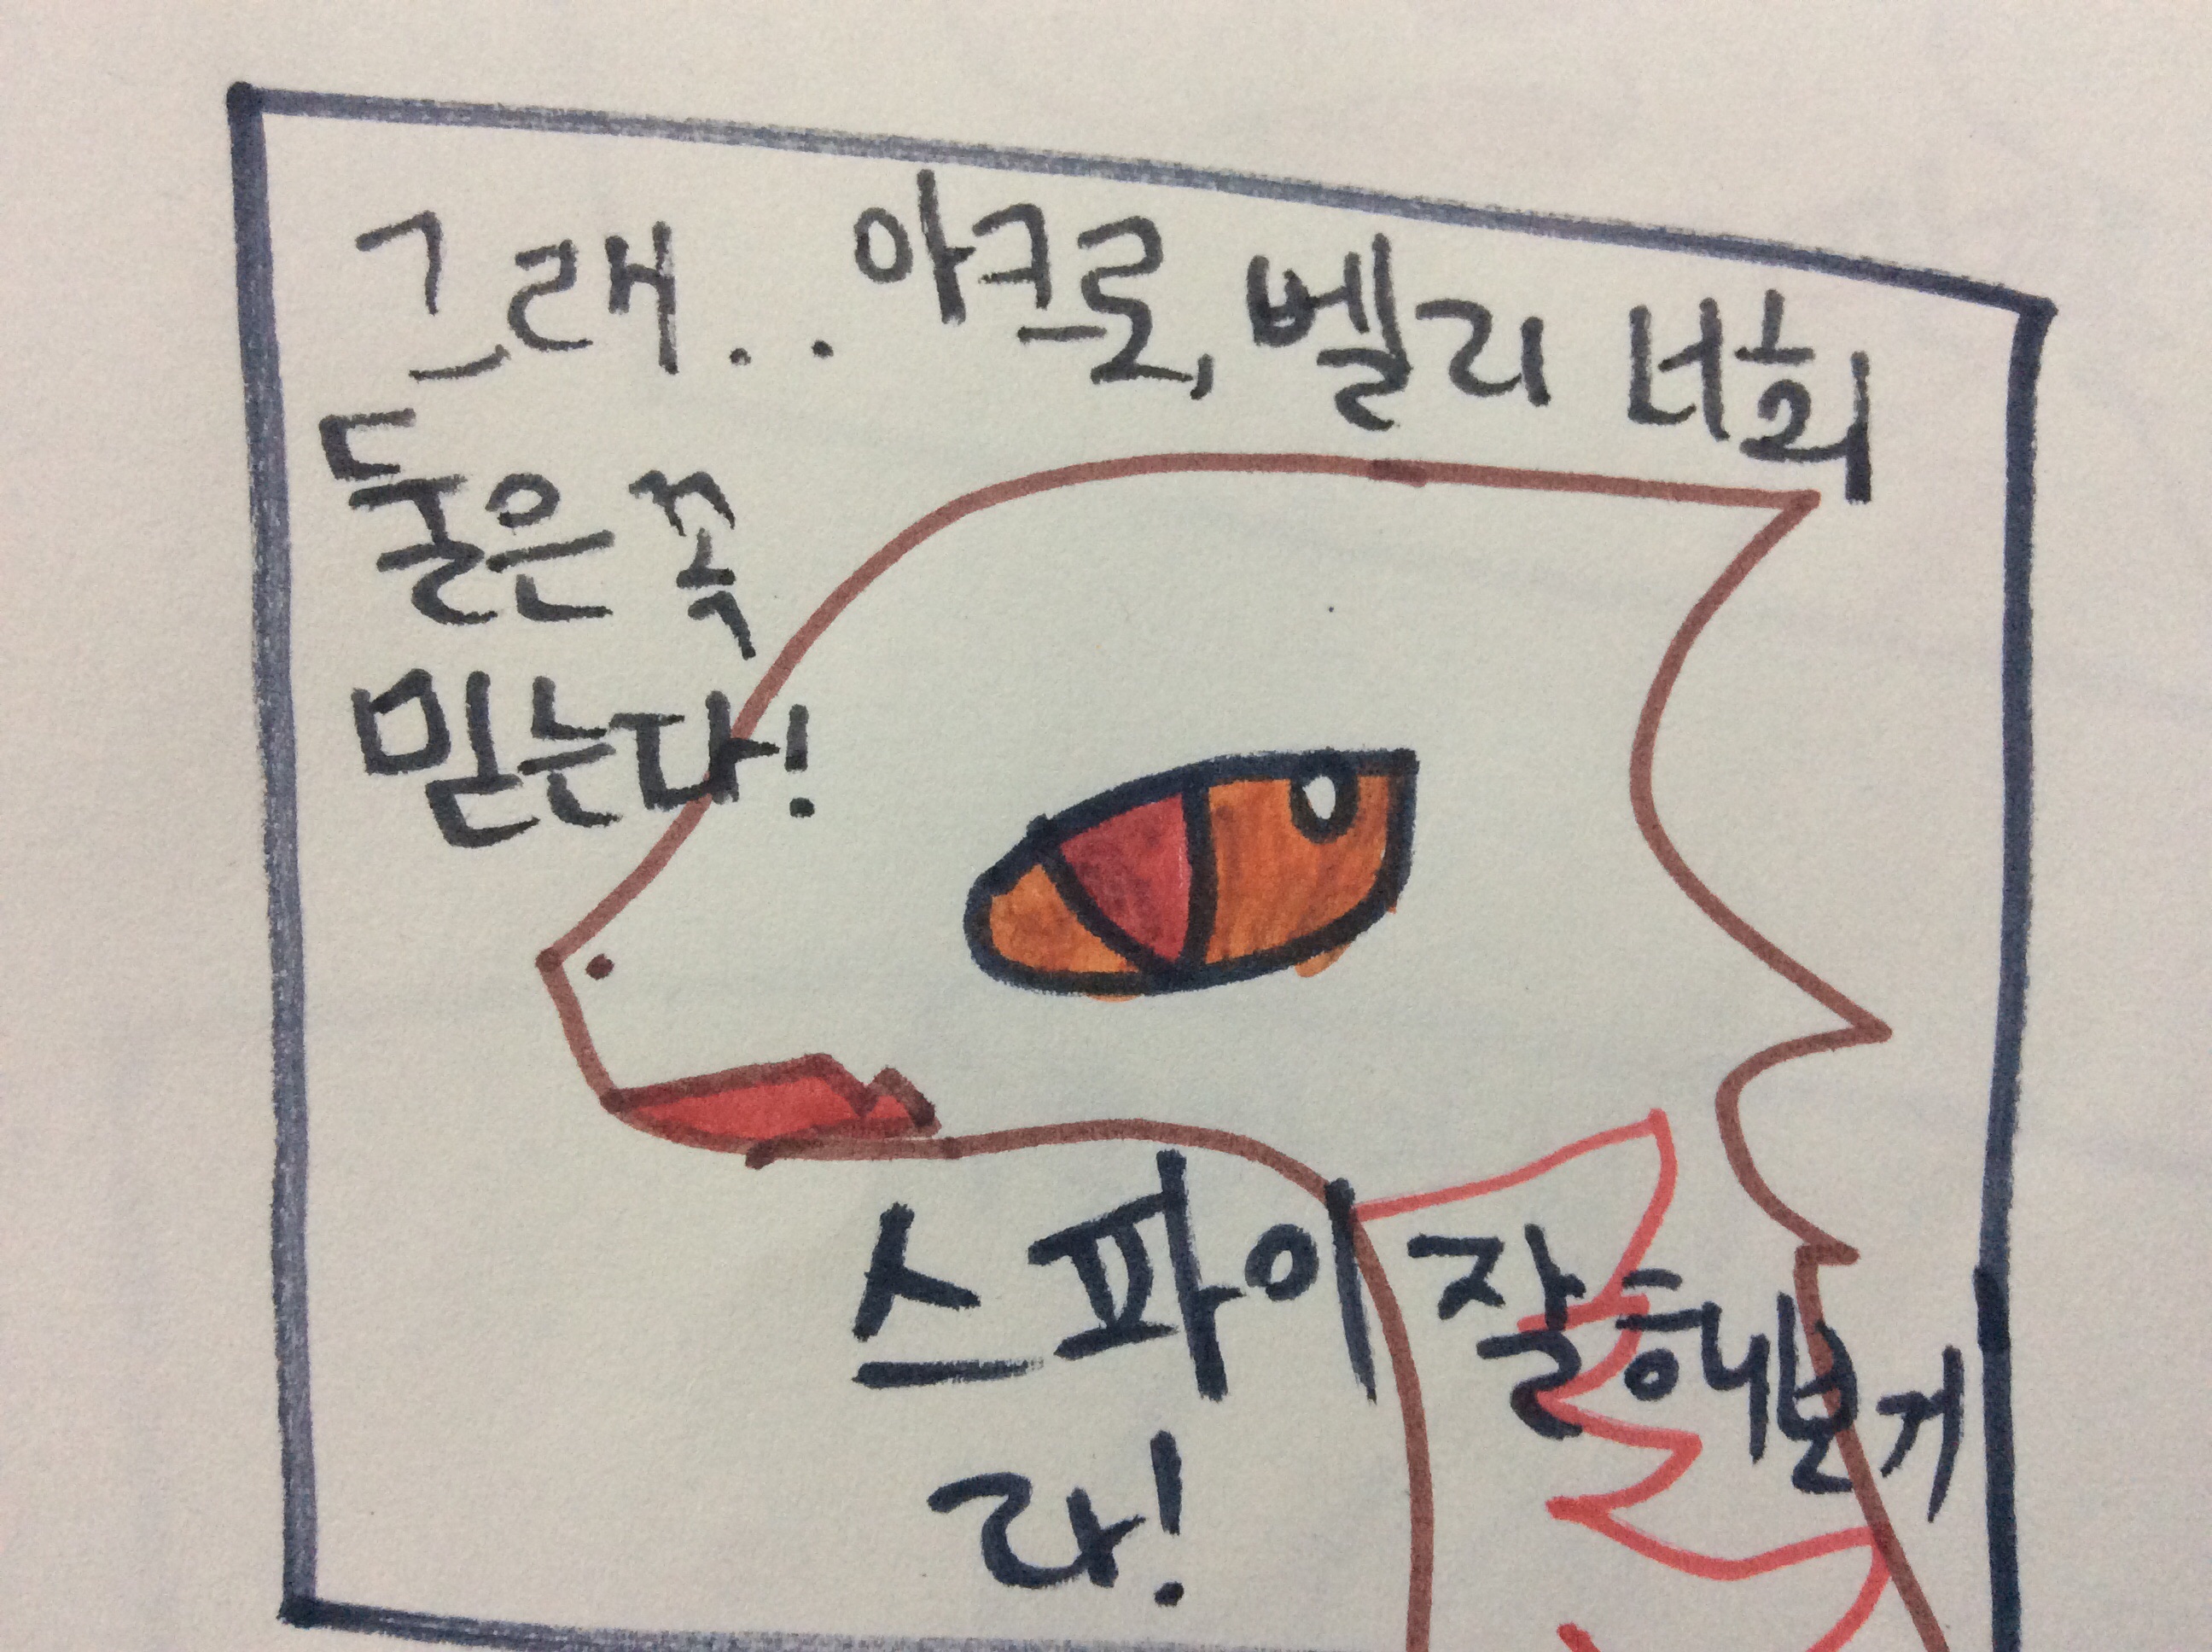 그래.. 아크로, 벨리 너희
둘은 꼭
믿는다!
스파이 잘해보거
라!